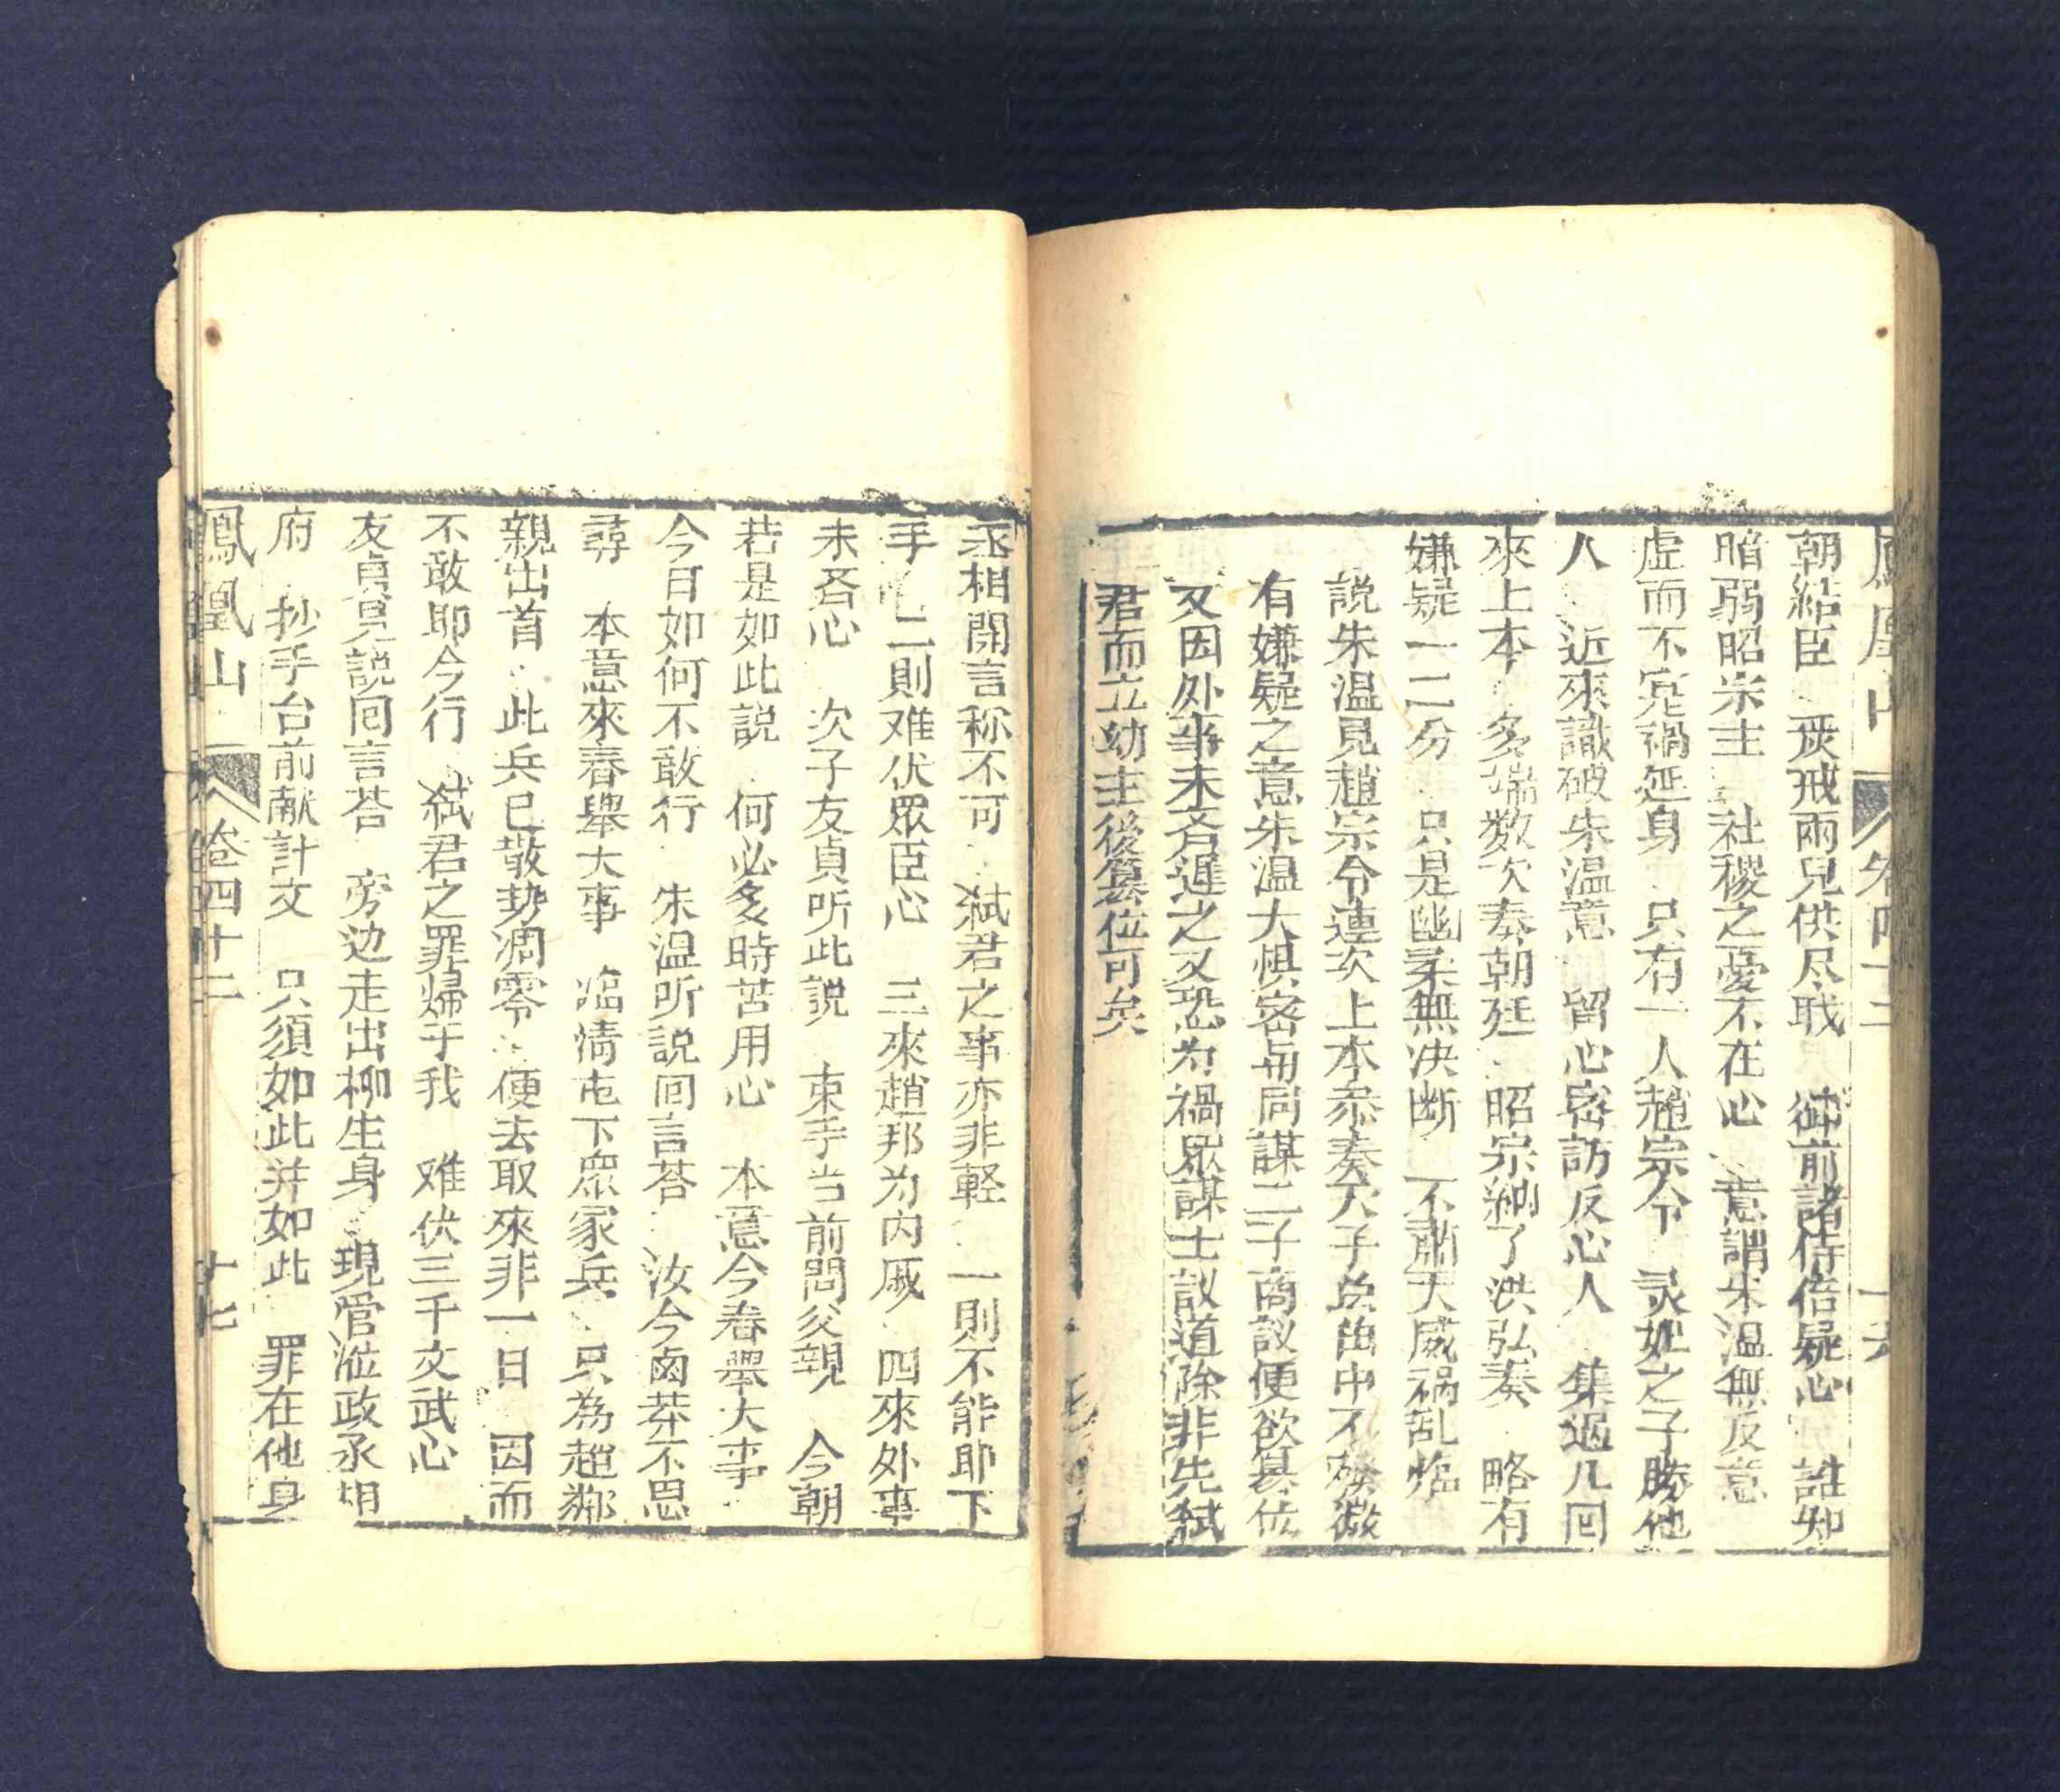 鳳凰山 卷四十二
朝結臣 炭戒兩兒供尽戝 御前諸侍倍疑心 誰知
暗弱昭宗主 社稷之憂不在心 意謂朱温無反意
虚而不寃禍延身 只有一人趙宗令 灵妃之子勝他
人 近來識破朱温意 留心密訪反心人 集過几回
來上本 多端数次奏朝廷 昭宗納了洪弘奏 略有
嫌疑一二分 只是幽柔無决断 不肅天威禍乱临
説朱温見趙宗令連次上本叅奏天子 中不 微
有嫌疑之意朱温大惧密与同謀二子商議便欲篡位
又因外事未吝遲之又恐为禍眾謀士議道除非先弑
君而立幼主後篡位可矣
丞相開言称不可 弑君之事亦非軽 一則不能即下
手 二則难伏眾臣心 三來趙邦为内戚 四來外事
未吝心 次子友貞听此説 束手当前問父親 今朝
若是如此説 何必多時苦用心 本意今春舉大事
今日如何不敢行 朱温听説回言荅 汝今鹵莽不思
尋 本意來春舉大事 临清屯下眾家兵 只為趙鄴
親出首 此兵已散势凋零 便去取來非一日 因而
不敢即今行 弑君之罪歸于我 难伏三千文武心
友貞見説回言荅 旁边走出柳生身 現管滋政丞相
府 抄手台前献計文 只須如此并如此 罪在他身
鳳凰山 卷四十二 十七